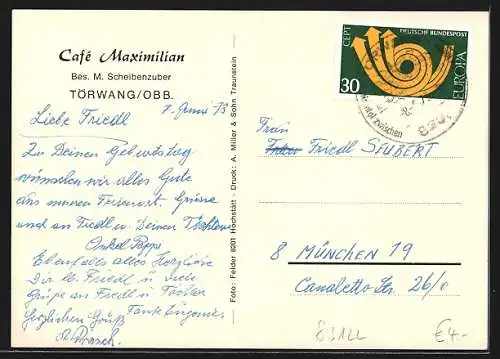 Café Maximilian
Bes. M. Scheibenzuber
TÖRWANG/OBB.
7. Juni 73
Liebe Friedl
Zu Deinen Geburtstag
wünschen wir alles Gute
aus unserem Ferienort. Grüsse
und an Friedl u. Deinen Töchtern
Onkel Beppi
Ebenfalls alles Herzliche
Dir lb. Friedl u. viele
Grüße an Friedl u Töchter
Herzlichen Gruß Tante
Foto: Felder 8201 Höchstätt · Druck: A. Miller & Sohn Traunstein
CEPT
DEUTSCHE BUNDESPOST
30
EUROPA
zwischen
Frau
Friedl SEUBERT
8 MÜNCHEN 19
Canaletto Str. 26/0
83122
€4-